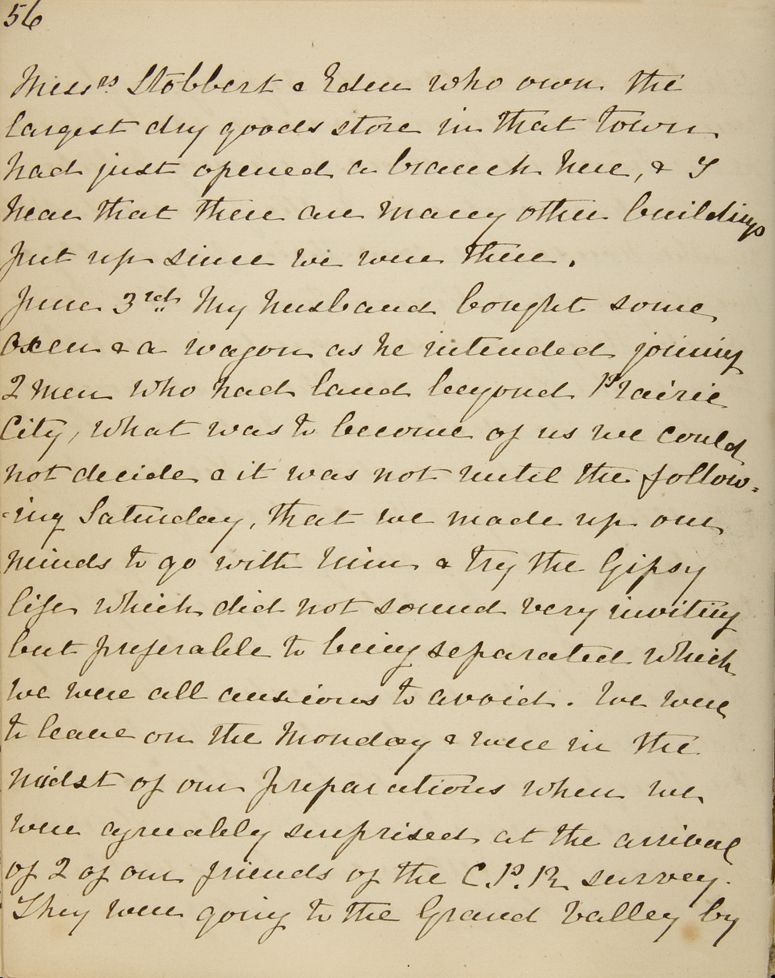 56
Mess.rs Stobbert & Eden who own the
largest dry goods store in that town
had just opened a branch here, & I
hear that there are many other buildings
put up since we were there.
June 3rd My husband bought some
oxen & a wagon as he intended joining
2 men who had land beyond Prairie
City, what was to become of us we could
not decide & it was not until the follow=
=ing Saturday, that we made up our
minds to go with him & try the Gipsy
life which did not sound very inviting
but preferable to being separated which
we were all anxious to avoid. We were
to leave on the Monday & were in the
midst of our preparations when we
were agreeably surprised at the arrival
of 2 of our friends of the C.P.R. survey.
They were going to the Grand Valley by